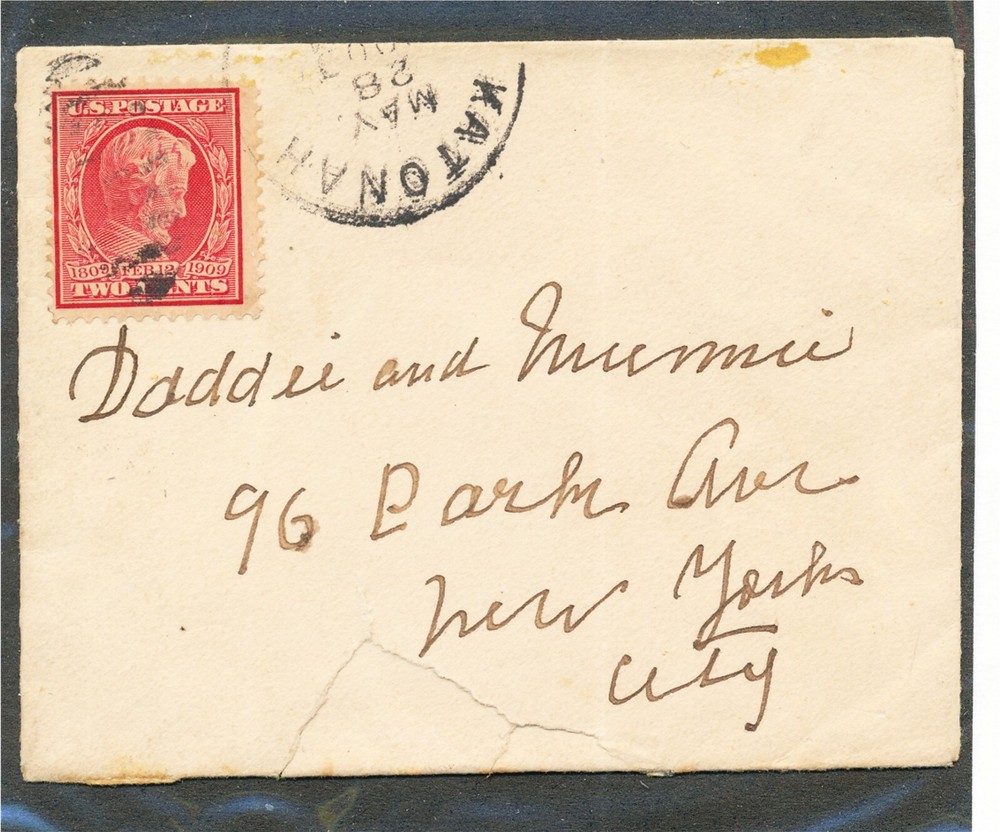 U.S. POSTAGE
1809 FEB. 12 1909
TWO CENTS
KATONAH
MAY
28
Daddie and Mummie
96 Park Ave
New York
City